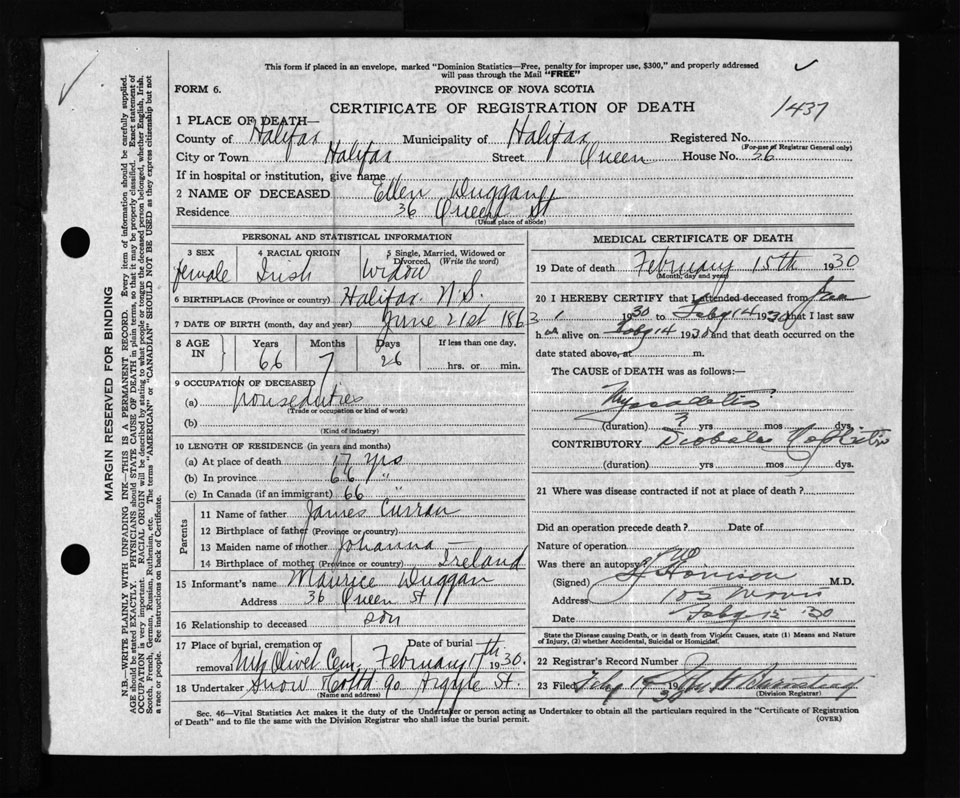 This form if placed in an envelope, marked "Dominion Statistics—Free, penalty for improper use, $300," and properly addressed
will pass through the Mail "FREE"
FORM 6.
PROVINCE OF NOVA SCOTIA
CERTIFICATE OF REGISTRATION OF DEATH
1437
1 PLACE OF DEATH—
County of Halifax Municipality of Halifax Registered No.
(For use of Registrar General only)
City or Town Halifax Street Queen House No. 36
If in hospital or institution, give name
2 NAME OF DECEASED Ellen Duggan
Residence 36 Queen St
(Usual place of abode)
PERSONAL AND STATISTICAL INFORMATION
3 SEX 4 RACIAL ORIGIN 5 Single, Married, Widowed or Divorced, (Write the word)
female Irish Widow
6 BIRTHPLACE (Province or country) Halifax N.S.
7 DATE OF BIRTH (month, day and year) June 21st 1863
8 AGE IN Years Months Days If less than one day,
66 7 26 hrs. or min.
9 OCCUPATION OF DECEASED
(a) houseduties
(Trade or occupation or kind of work)
(b)
(Kind of industry)
10 LENGTH OF RESIDENCE (in years and months)
(a) At place of death 17 yrs
(b) In province 66 "
(c) In Canada (if an immigrant) 66 "
Parents
11 Name of father James Curran
12 Birthplace of father (Province or country)
13 Maiden name of mother Johanna —
14 Birthplace of mother (Province or country) Ireland
15 Informant's name Maurice Duggan
Address 36 Queen St
16 Relationship to deceased son
17 Place of burial, cremation or removal Mt Olivet Cem. Date of burial February 17th 1930.
18 Undertaker Snow & Co Ltd 90 Argyle St.
(Name and address)
MEDICAL CERTIFICATE OF DEATH
19 Date of death February 15th 1930
(Month, day and year)
20 I HEREBY CERTIFY that I attended deceased from Jan
1930 to Feby 14 1930 that I last saw
h er alive on Feby 14 1930 and that death occurred on the
date stated above, at m.
The CAUSE of DEATH was as follows:—
(duration) 3 yrs mos dys.
CONTRIBUTORY
(duration) yrs mos dys.
21 Where was disease contracted if not at place of death?
Did an operation precede death? Date of
Nature of operation
Was there an autopsy? no
(Signed) M.D.
Address
Date Feby 15 '30
State the Disease causing Death, or in death from Violent Causes, state (1) Means and Nature
of Injury, (2) whether Accidental, Suicidal or Homicidal.
22 Registrar's Record Number
23 Filed Feby 19 1930
(Division Registrar)
Sec. 46—Vital Statistics Act makes it the duty of the Undertaker or person acting as Undertaker to obtain all the particulars required in the "Certificate of Registration
of Death" and to file the same with the Division Registrar who shall issue the burial permit.
(OVER)
MARGIN RESERVED FOR BINDING
N.B.—WRITE PLAINLY WITH UNFADING INK—THIS IS A PERMANENT RECORD. Every item of information should be carefully supplied.
AGE should be stated EXACTLY. PHYSICIANS should STATE CAUSE OF DEATH in plain terms, so that it may be properly classified. Exact statement of
OCCUPATION is very important. RACIAL ORIGIN will be described by stating to what people or tongue the deceased person belonged, whether English, Irish,
Scotch, French, German, Russian, Ruthenian, etc. The terms "AMERICAN" or "CANADIAN" SHOULD NOT BE USED as they express citizenship but not
a race or people. See instructions on back of Certificate.